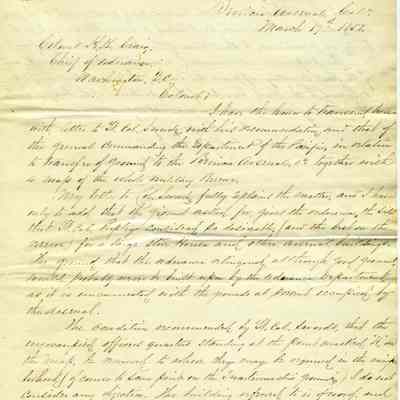 Benicia Arsenal, Cal.
March 17th 1852
Colonel H. K. Craig
Chief of Ordnance
Washington, D.C.
Colonel
I have the honor to transmit here
with letter to Lt. Col. Swords with his recommendation and that of
the general commanding the Department of the Pacific, in relation
to transfer of ground to the Benicia Arsenal, &c together with
a map of the whole Military Reserve.
My letter to Col. Swords fully explains the matter, and I have
only to add that the ground asked for, gives the ordnance, the
that Lt. Col. so desirable, and the best on the
for a large store house and other arsenal buildings.
The ground that the ordnance relinquish, although good ground,
would probably never be built upon by the Ordnance Department
as it is unconnected with the grounds at present occupied by
the arsenal.
The condition recommended by Lt. Col. Swords, that the
officers quarters standing at the point marked H on
the map, be removed to where they may be required in the
of some point on the Quartermasters ground, I do not
consider any objection. The building referred to is of wood, and